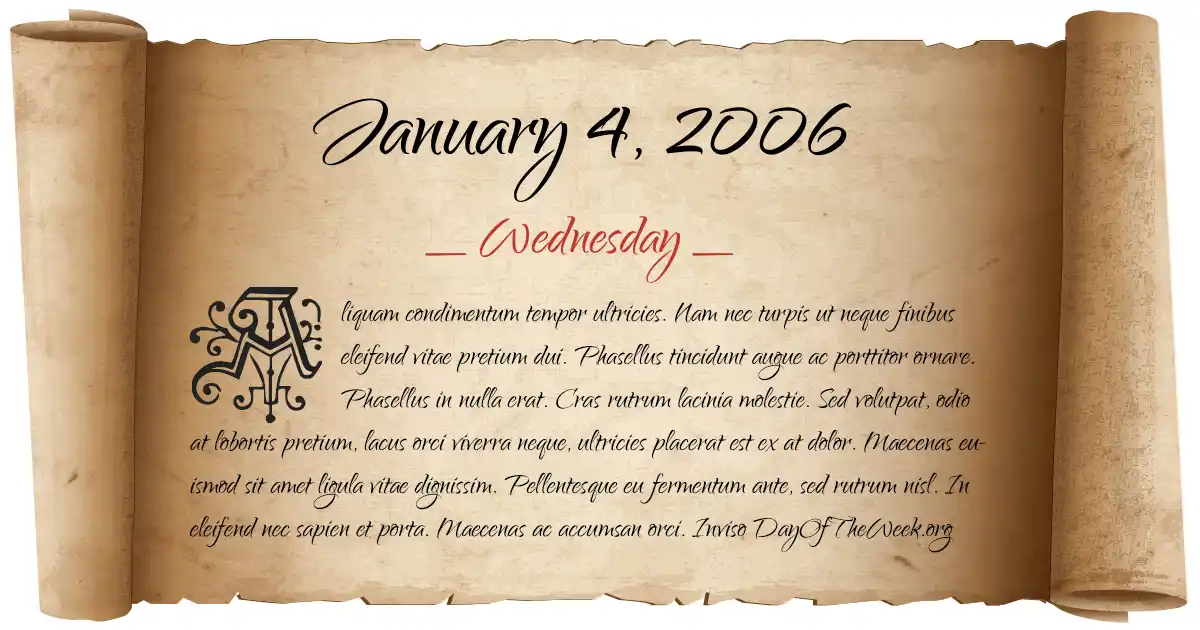 January 4, 2006
Wednesday
Aliquam condimentum tempor ultricies. Nam nec turpis ut neque finibus
eleifend vitae pretium dui. Phasellus tincidunt augue ac porttitor ornare.
Phasellus in nulla erat. Cras rutrum lacinia molestie. Sed volutpat, odio
at lobortis pretium, lacus orci viverra neque, ultricies placerat est ex at dolor. Maecenas eu-
ismod sit amet ligula vitae dignissim. Pellentesque eu fermentum ante, sed rutrum nisl. In
eleifend nec sapien et porta. Maecenas ac accumsan orci. Inviso DayOfTheWeek.org